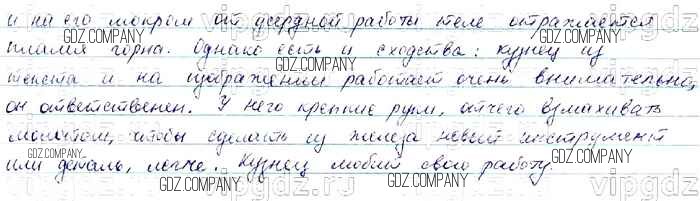 и на его мокром от усердной работы теле отражается
пламя горна. Однако есть и сходства: кузнец из
текста и на изображении работает очень внимательно,
он ответственен. У него крепкие руки, отчего взмахивать
молотом, чтобы сделать из железа новый инструмент
или деталь, легче. Кузнец любит свою работу.
GDZ.COMPANY
vipgdz.ru